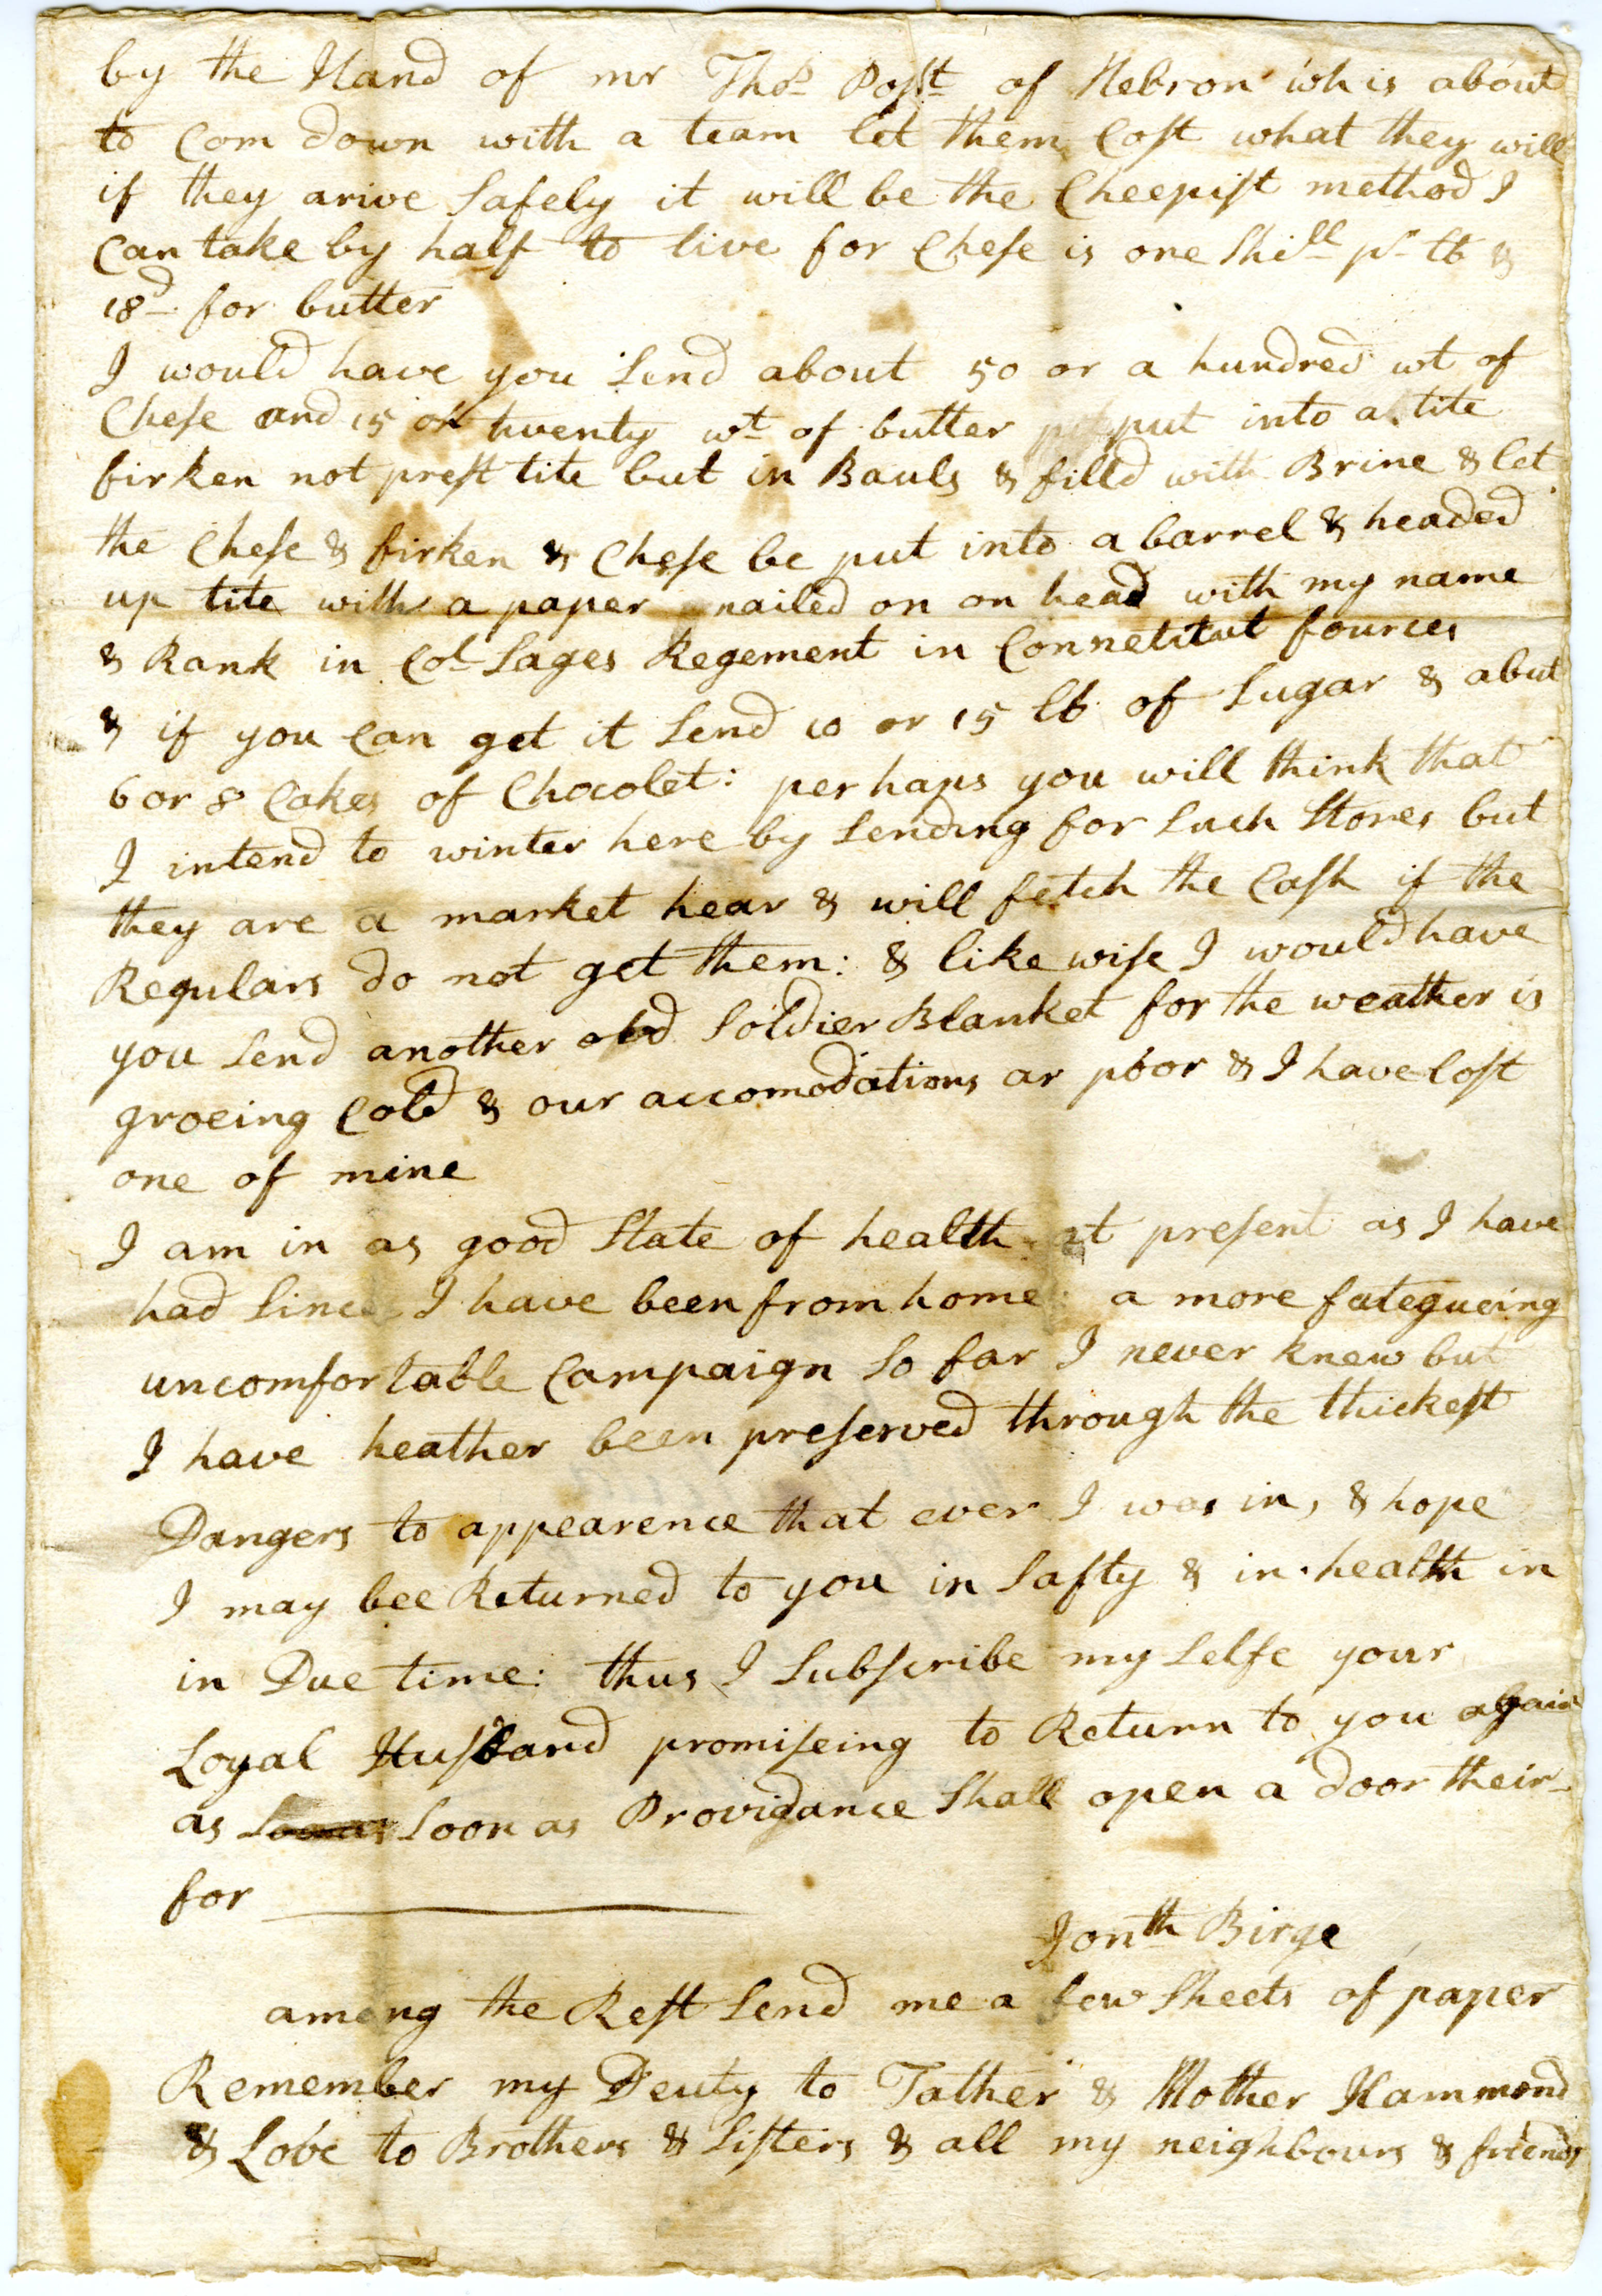 by the Hand of mr Thos Post of Hebron wh is about
to Com down with a team let them Cost what they will
if they arive Safely it will be the Cheepist method I
Can take by half to live for Chese is one Shill pr lb &
18d for butter
I would have you Send about 50 or a hundred wt of
Chese and 15 or twenty wt of butter put into a tite
firken not prest tite but in Bauls & filld with Brine & let
the Chese & firken & Chese be put into a barrel & headed
up tite with a paper nailed on on head with my name
& Rank in Col Sages Regement in Connetitut fources
& if you Can get it Send 10 or 15 lb of Sugar & abut
6 or 8 Cakes of Chocolet: perhaps you will think that
I intend to winter here by Sending for Such Stores but
they are a market hear & will fetch the Cash if the
Regulars do not get them: & like wise I would have
you Send another old Soldier Blanket for the weather is
groeing Cold & our accomodations ar poor & I have lost
one of mine
I am in as good State of health at present as I have
had Since I have been from home: a more fategueing
uncomfortable Campaign So far I never knew but
I have heather been preserved through the thickest
Dangers to appearence that ever I was in, & hope
I may bee Returned to you in Safty & in health in
in Due time: thus I Subscribe my Selfe your
Loyal Husband promiseing to Return to you again
as Soon as Providance Shall open a door their-
for
Jonth Birge
among the Rest Send me a few Sheets of paper
Remember my Deuty to Father & Mother Hammond
& Love to Brothers & Sisters & all my neighbours & friends